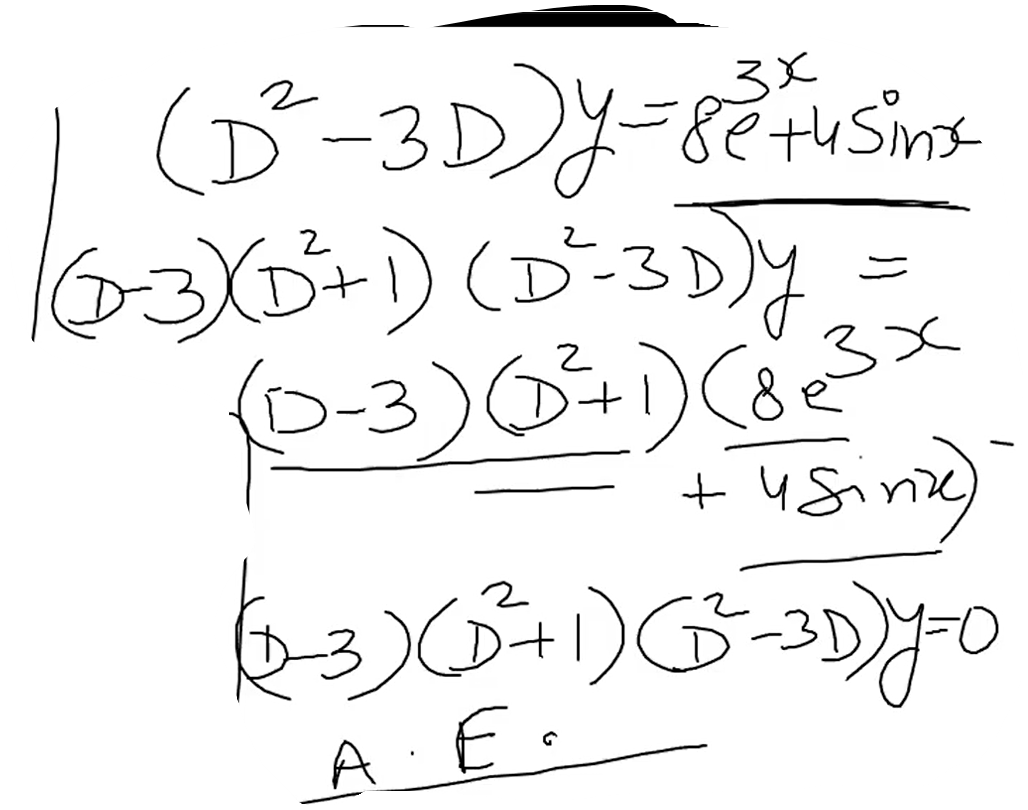 (D²-3D)y=8e³ˣ+4Sinx
(D-3)(D²+1) (D²-3D)y =
(D-3)(D²+1)(8e³ˣ
+ 4Sinx)-
(D-3)(D²+1)(D²-3D)y=0
A.E.